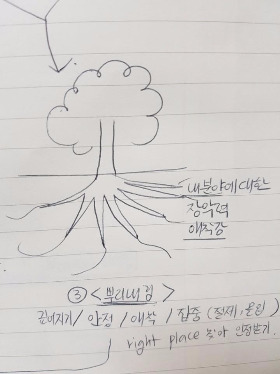 내분야에 대한
장악력
애착감
③ <뿌리내림>
깊어지기 / 안정 / 애착 / 집중 (절제, 몰입)
right place 찾아 인정받기.